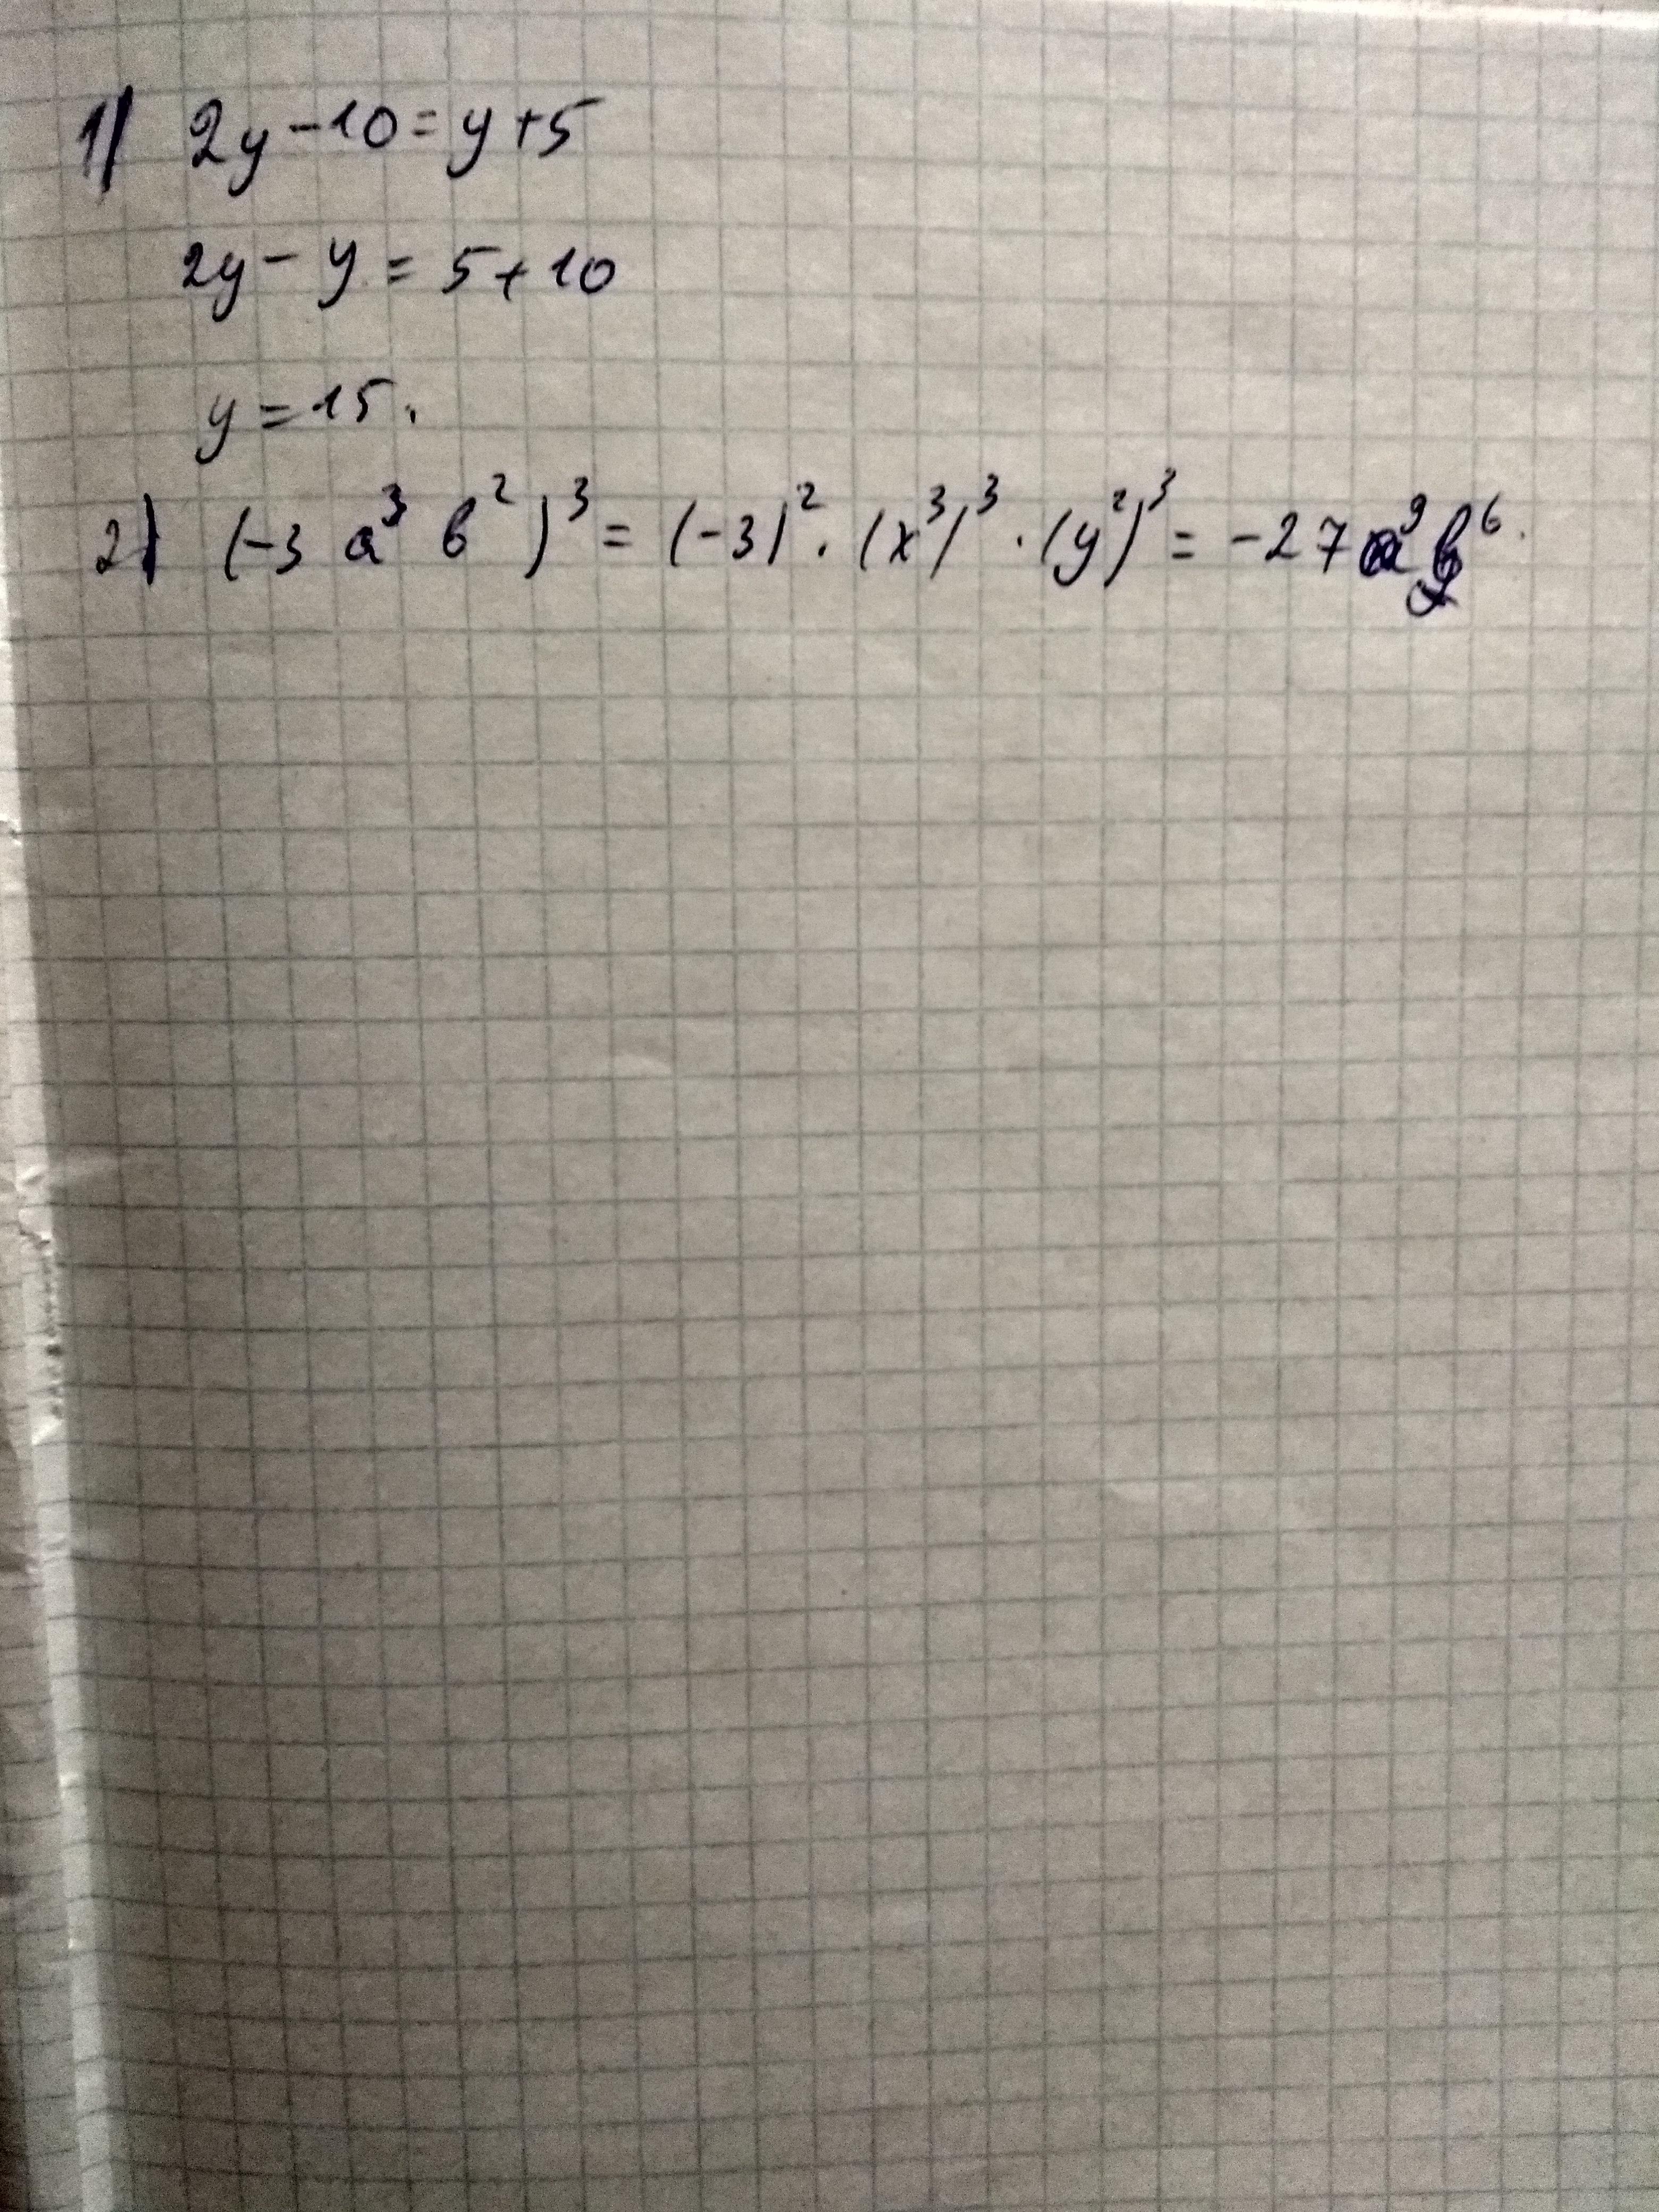 1) 2y-10=y+5
2y-y=5+10
y=15.
2) (-3 a³ b²)³=(-3)²·(x³)³·(y²)³=-27a⁹b⁶.